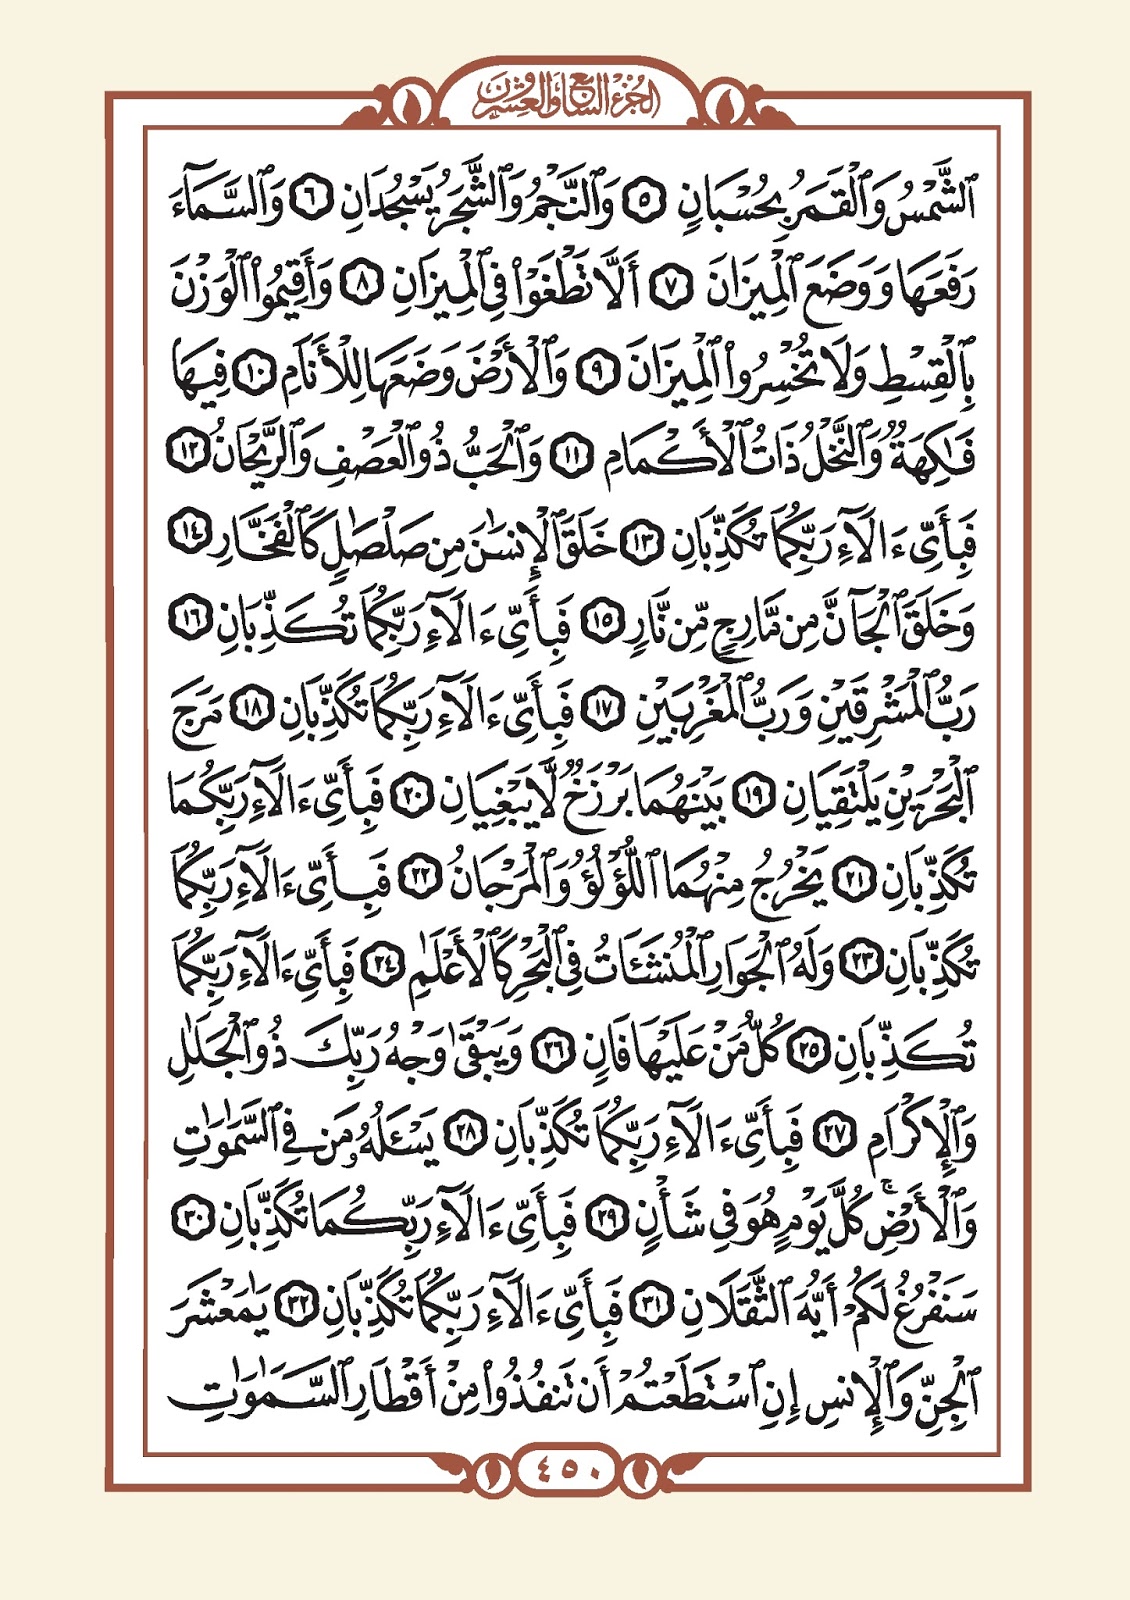 الجزء السابع والعشرون
ٱلشَّمْسُ وَٱلْقَمَرُ بِحُسْبَانٍ ٥ وَٱلنَّجْمُ وَٱلشَّجَرُ يَسْجُدَانِ ٦ وَٱلسَّمَآءَ
رَفَعَهَا وَوَضَعَ ٱلْمِيزَانَ ٧ أَلَّا تَطْغَوْا۟ فِى ٱلْمِيزَانِ ٨ وَأَقِيمُوا۟ ٱلْوَزْنَ
بِٱلْقِسْطِ وَلَا تُخْسِرُوا۟ ٱلْمِيزَانَ ٩ وَٱلْأَرْضَ وَضَعَهَا لِلْأَنَامِ ١٠ فِيهَا
فَـٰكِهَةٌ وَٱلنَّخْلُ ذَاتُ ٱلْأَكْمَامِ ١١ وَٱلْحَبُّ ذُو ٱلْعَصْفِ وَٱلرَّيْحَانُ ١٢
فَبِأَىِّ ءَالَآءِ رَبِّكُمَا تُكَذِّبَانِ ١٣ خَلَقَ ٱلْإِنسَـٰنَ مِن صَلْصَـٰلٍ كَٱلْفَخَّارِ ١٤
وَخَلَقَ ٱلْجَآنَّ مِن مَّارِجٍ مِّن نَّارٍ ١٥ فَبِأَىِّ ءَالَآءِ رَبِّكُمَا تُكَذِّبَانِ ١٦
رَبُّ ٱلْمَشْرِقَيْنِ وَرَبُّ ٱلْمَغْرِبَيْنِ ١٧ فَبِأَىِّ ءَالَآءِ رَبِّكُمَا تُكَذِّبَانِ ١٨ مَرَجَ
ٱلْبَحْرَيْنِ يَلْتَقِيَانِ ١٩ بَيْنَهُمَا بَرْزَخٌ لَّا يَبْغِيَانِ ٢٠ فَبِأَىِّ ءَالَآءِ رَبِّكُمَا
تُكَذِّبَانِ ٢١ يَخْرُجُ مِنْهُمَا ٱللُّؤْلُؤُ وَٱلْمَرْجَانُ ٢٢ فَبِأَىِّ ءَالَآءِ رَبِّكُمَا
تُكَذِّبَانِ ٢٣ وَلَهُ ٱلْجَوَارِ ٱلْمُنشَـَٔاتُ فِى ٱلْبَحْرِ كَٱلْأَعْلَـٰمِ ٢٤ فَبِأَىِّ ءَالَآءِ رَبِّكُمَا
تُكَذِّبَانِ ٢٥ كُلُّ مَنْ عَلَيْهَا فَانٍ ٢٦ وَيَبْقَىٰ وَجْهُ رَبِّكَ ذُو ٱلْجَلَـٰلِ
وَٱلْإِكْرَامِ ٢٧ فَبِأَىِّ ءَالَآءِ رَبِّكُمَا تُكَذِّبَانِ ٢٨ يَسْـَٔلُهُۥ مَن فِى ٱلسَّمَـٰوَٰتِ
وَٱلْأَرْضِ ۚ كُلَّ يَوْمٍ هُوَ فِى شَأْنٍ ٢٩ فَبِأَىِّ ءَالَآءِ رَبِّكُمَا تُكَذِّبَانِ ٣٠
سَنَفْرُغُ لَكُمْ أَيُّهَ ٱلثَّقَلَانِ ٣١ فَبِأَىِّ ءَالَآءِ رَبِّكُمَا تُكَذِّبَانِ ٣٢ يَـٰمَعْشَرَ
ٱلْجِنِّ وَٱلْإِنسِ إِنِ ٱسْتَطَعْتُمْ أَن تَنفُذُوا۟ مِنْ أَقْطَارِ ٱلسَّمَـٰوَٰتِ
٤٥٠